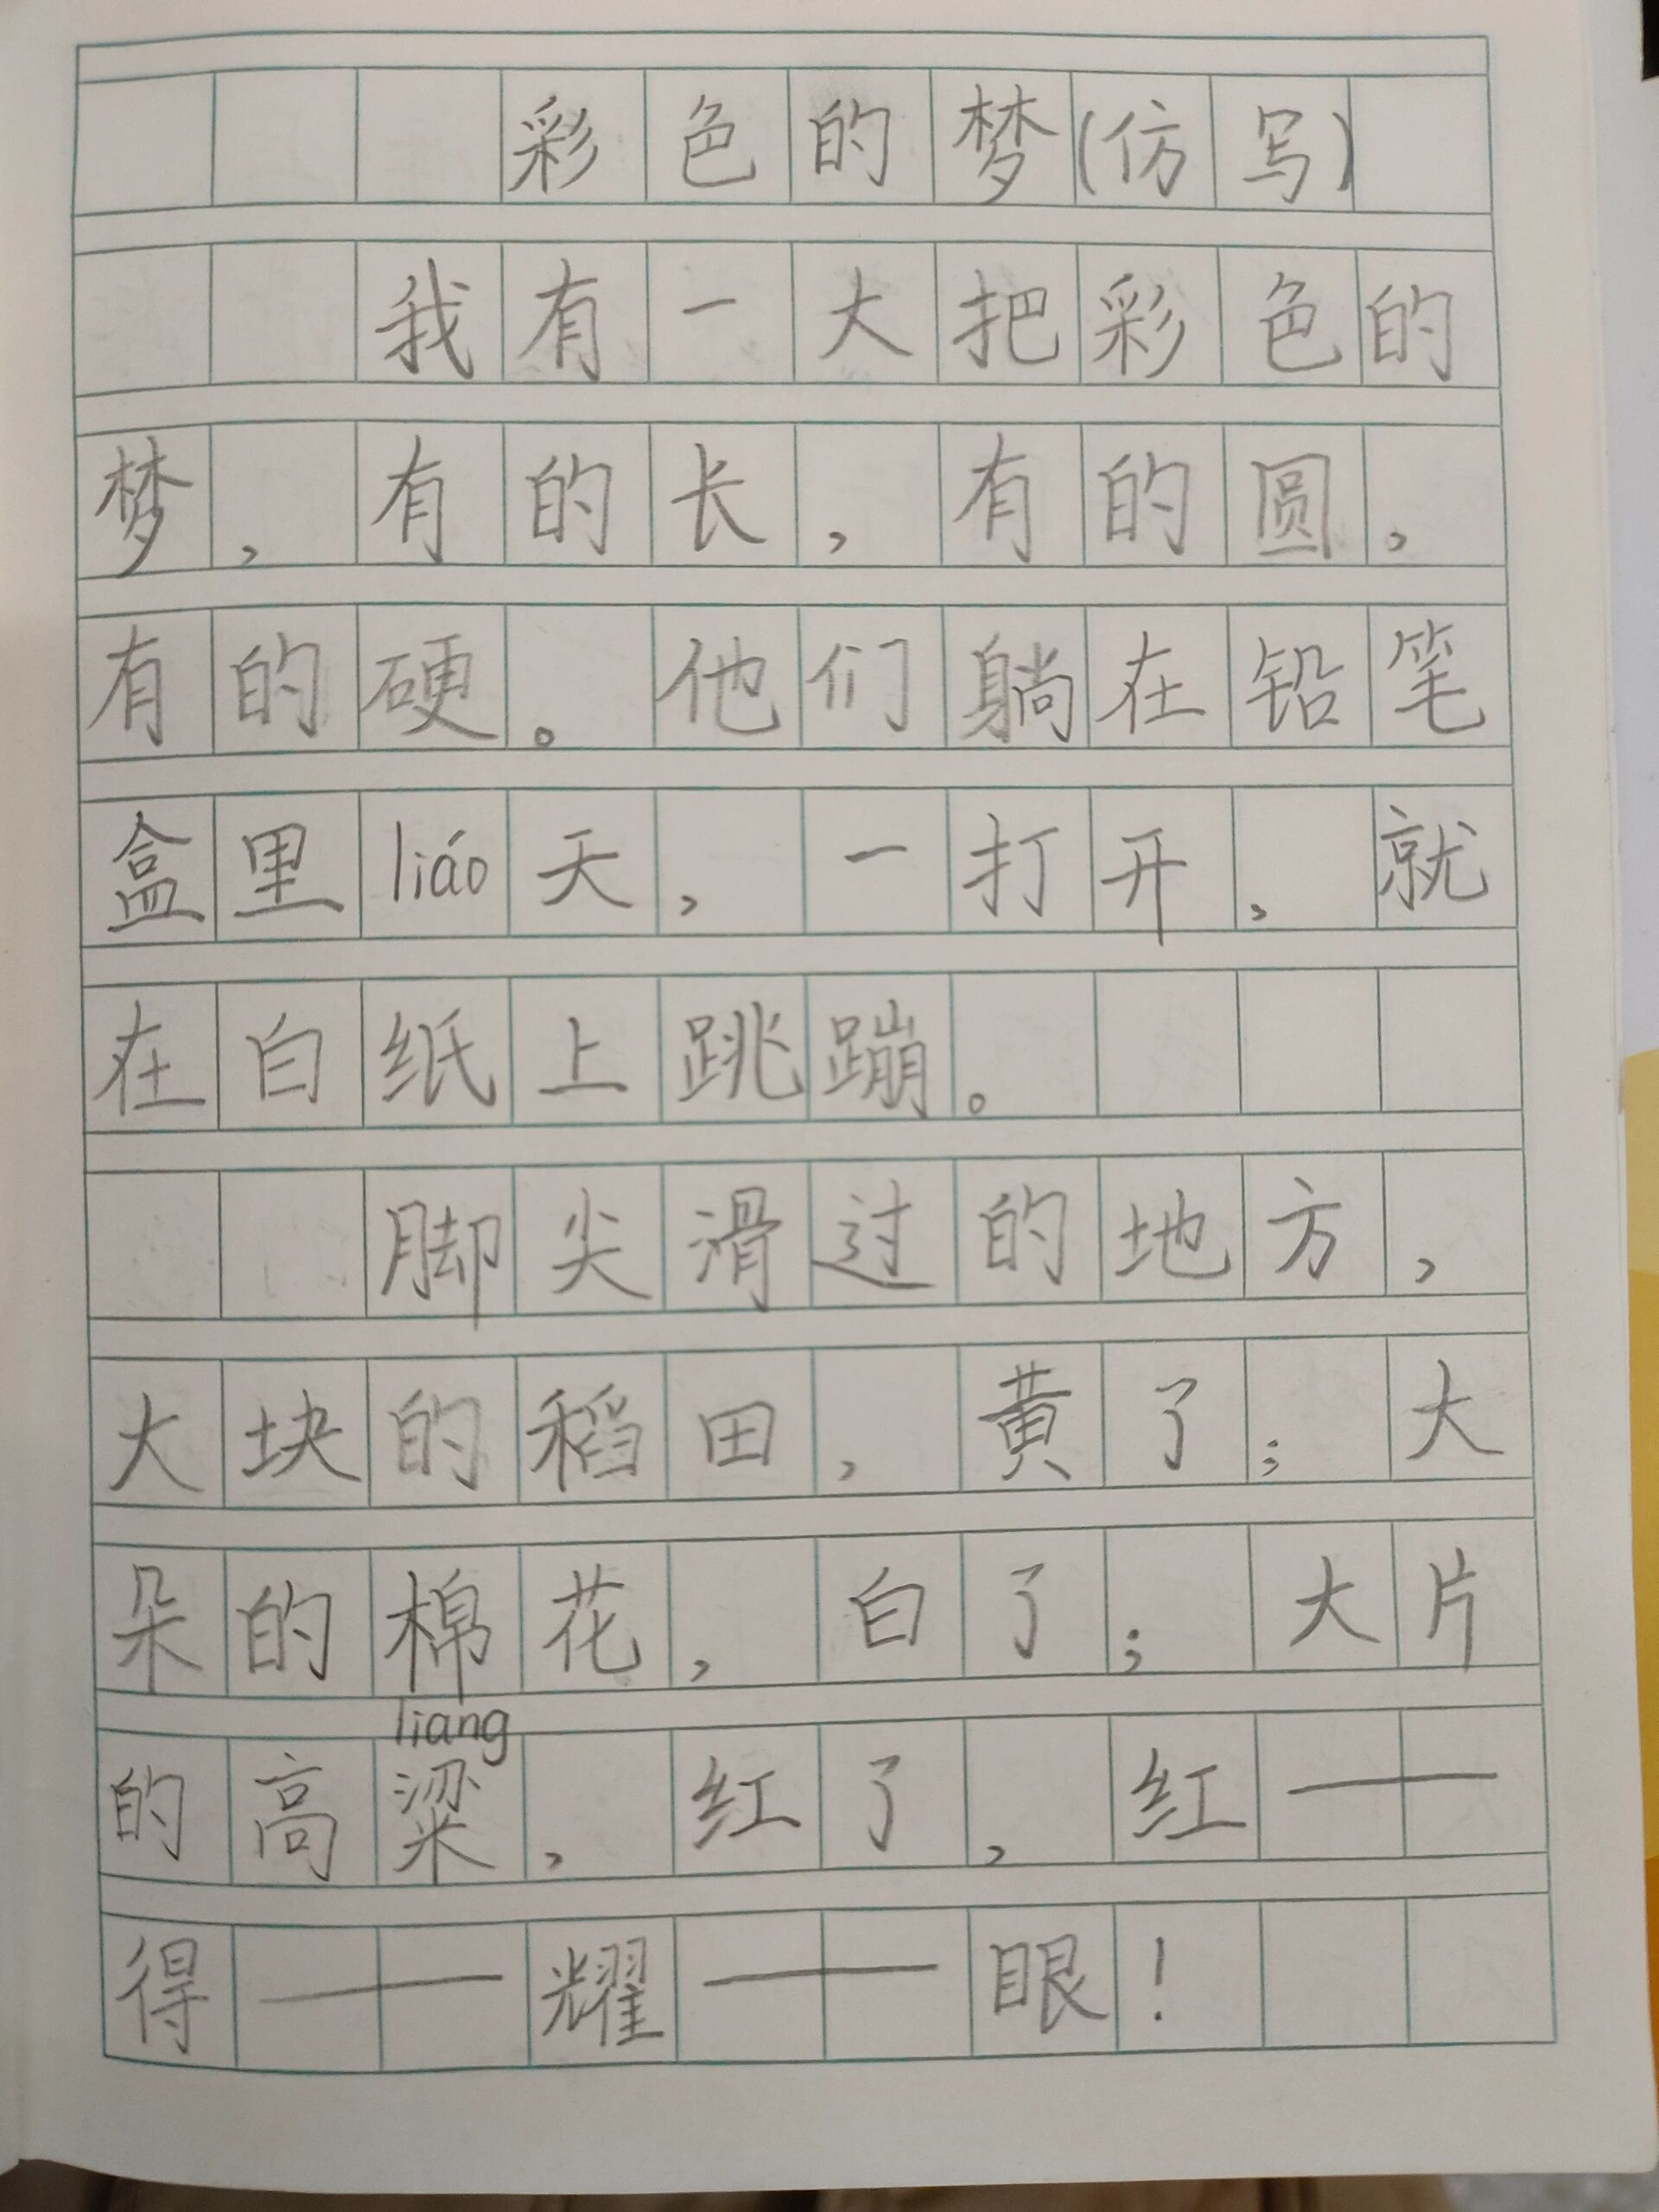 彩色的梦(仿写)
我有一大把彩色的
梦,有的长,有的圆,
有的硬。他们躺在铅笔
盒里liáo天,一打开,就
在白纸上跳蹦。
脚尖滑过的地方,
大块的稻田,黄了;大
朵的棉花,白了;大片
liang
的高粱,红了,红——
得——耀——眼!